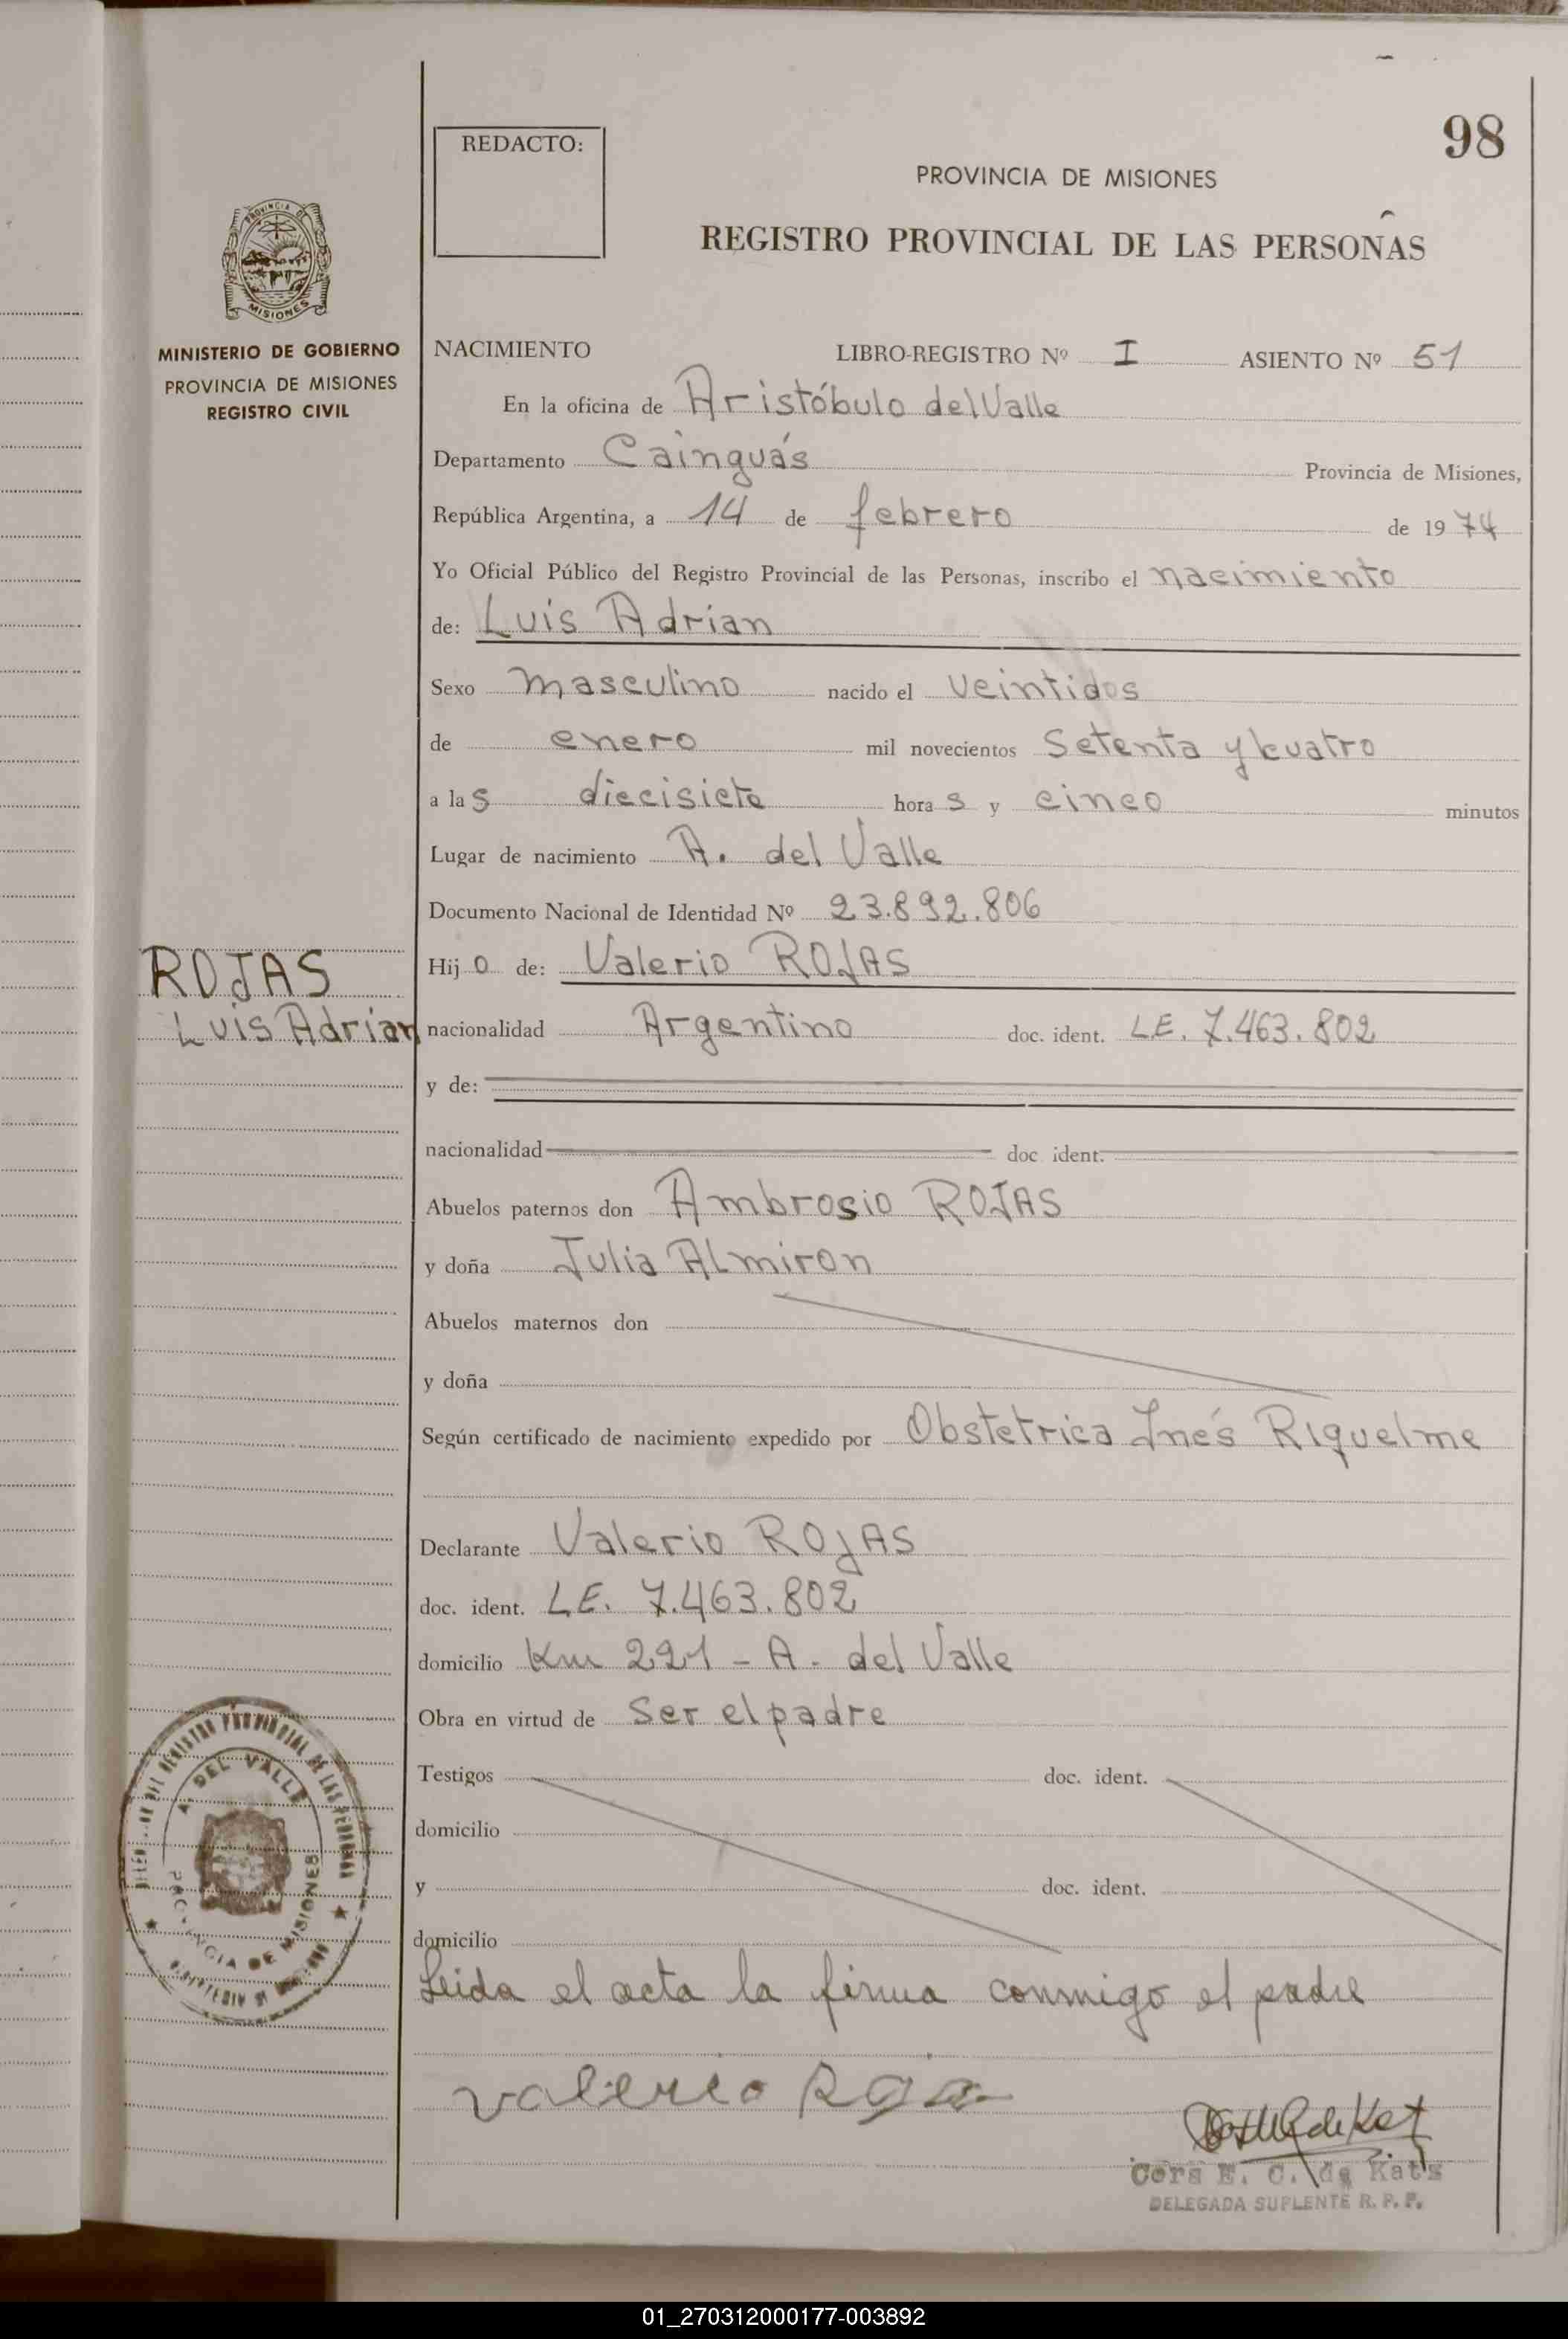 98
REDACTO:
PROVINCIA DE MISIONES
REGISTRO PROVINCIAL DE LAS PERSONAS
PROVINCIA DE
MISIONES
MINISTERIO DE GOBIERNO
PROVINCIA DE MISIONES
REGISTRO CIVIL
NACIMIENTO LIBRO-REGISTRO Nº I ASIENTO Nº 51
En la oficina de Aristóbulo del Valle
Departamento Cainguás Provincia de Misiones,
República Argentina, a 14 de febrero de 1974
Yo Oficial Público del Registro Provincial de las Personas, inscribo el nacimiento
de: Luis Adrian
Sexo masculino nacido el veintidos
de enero mil novecientos setenta y cuatro
a las diecisiete horas y cinco minutos
Lugar de nacimiento A. del Valle
Documento Nacional de Identidad Nº 23.892.806
ROJAS
Luis Adrian
Hijo de: Valerio ROJAS
nacionalidad Argentino doc. ident. LE. 7.463.802
y de:
nacionalidad doc ident.
Abuelos paternos don Ambrosio ROJAS
y doña Julia ALmiron
Abuelos maternos don
y doña
Según certificado de nacimiento expedido por Obstetrica Inés Riquelme
Declarante Valerio ROJAS
doc. ident. LE. 7.463.802
domicilio Km 221 - A. del Valle
Obra en virtud de ser el padre
Testigos doc. ident.
domicilio
y doc. ident.
domicilio
DEL REGISTRO PROVINCIAL DE LAS PERSONAS
A. DEL VALLE
PROVINCIA DE MISIONES
Leida el acta la firma conmigo el padre
Valerio
Cora E. C. de Kats
DELEGADA SUPLENTE R. P. P.
01_270312000177-003892